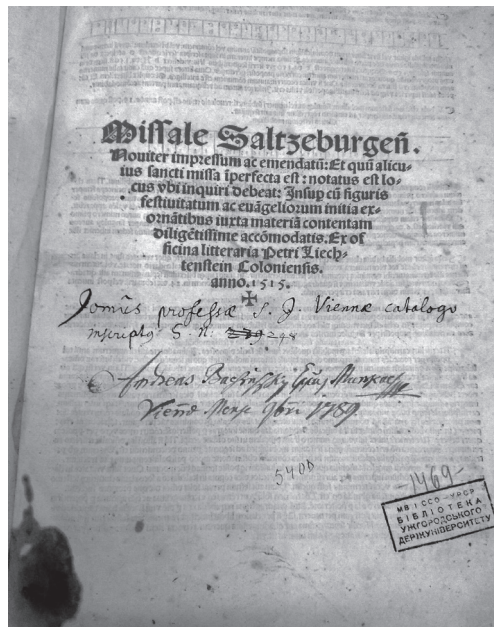 Missale Saltzeburgeñ.
Noviter impressum ac emendatū: Et quū alicu-
ius sancti missa īperfecta est: notatus est lo-
cus vbi inquiri debeat: Insup cū figuris
festivitatum ac euāgeliorum initia ex-
ornātibus iuxta materiā contentam
diligētissime accōmodatis. Ex of
ficina litteraria Petri Liech-
tenstein Coloniensis.
anno. 1515.
Domûs professæ S. J. Viennæ catalogo
inscriptus S. n: 248
Andreas Bacsinszky Eppus Munkacs
Viennæ Mense 9bri 1789.
5400
-1469-
МВ І ССО - УРСР
БІБЛІОТЕКА
УЖГОРОДСЬКОГО
ДЕРЖУНІВЕРСИТЕТУ